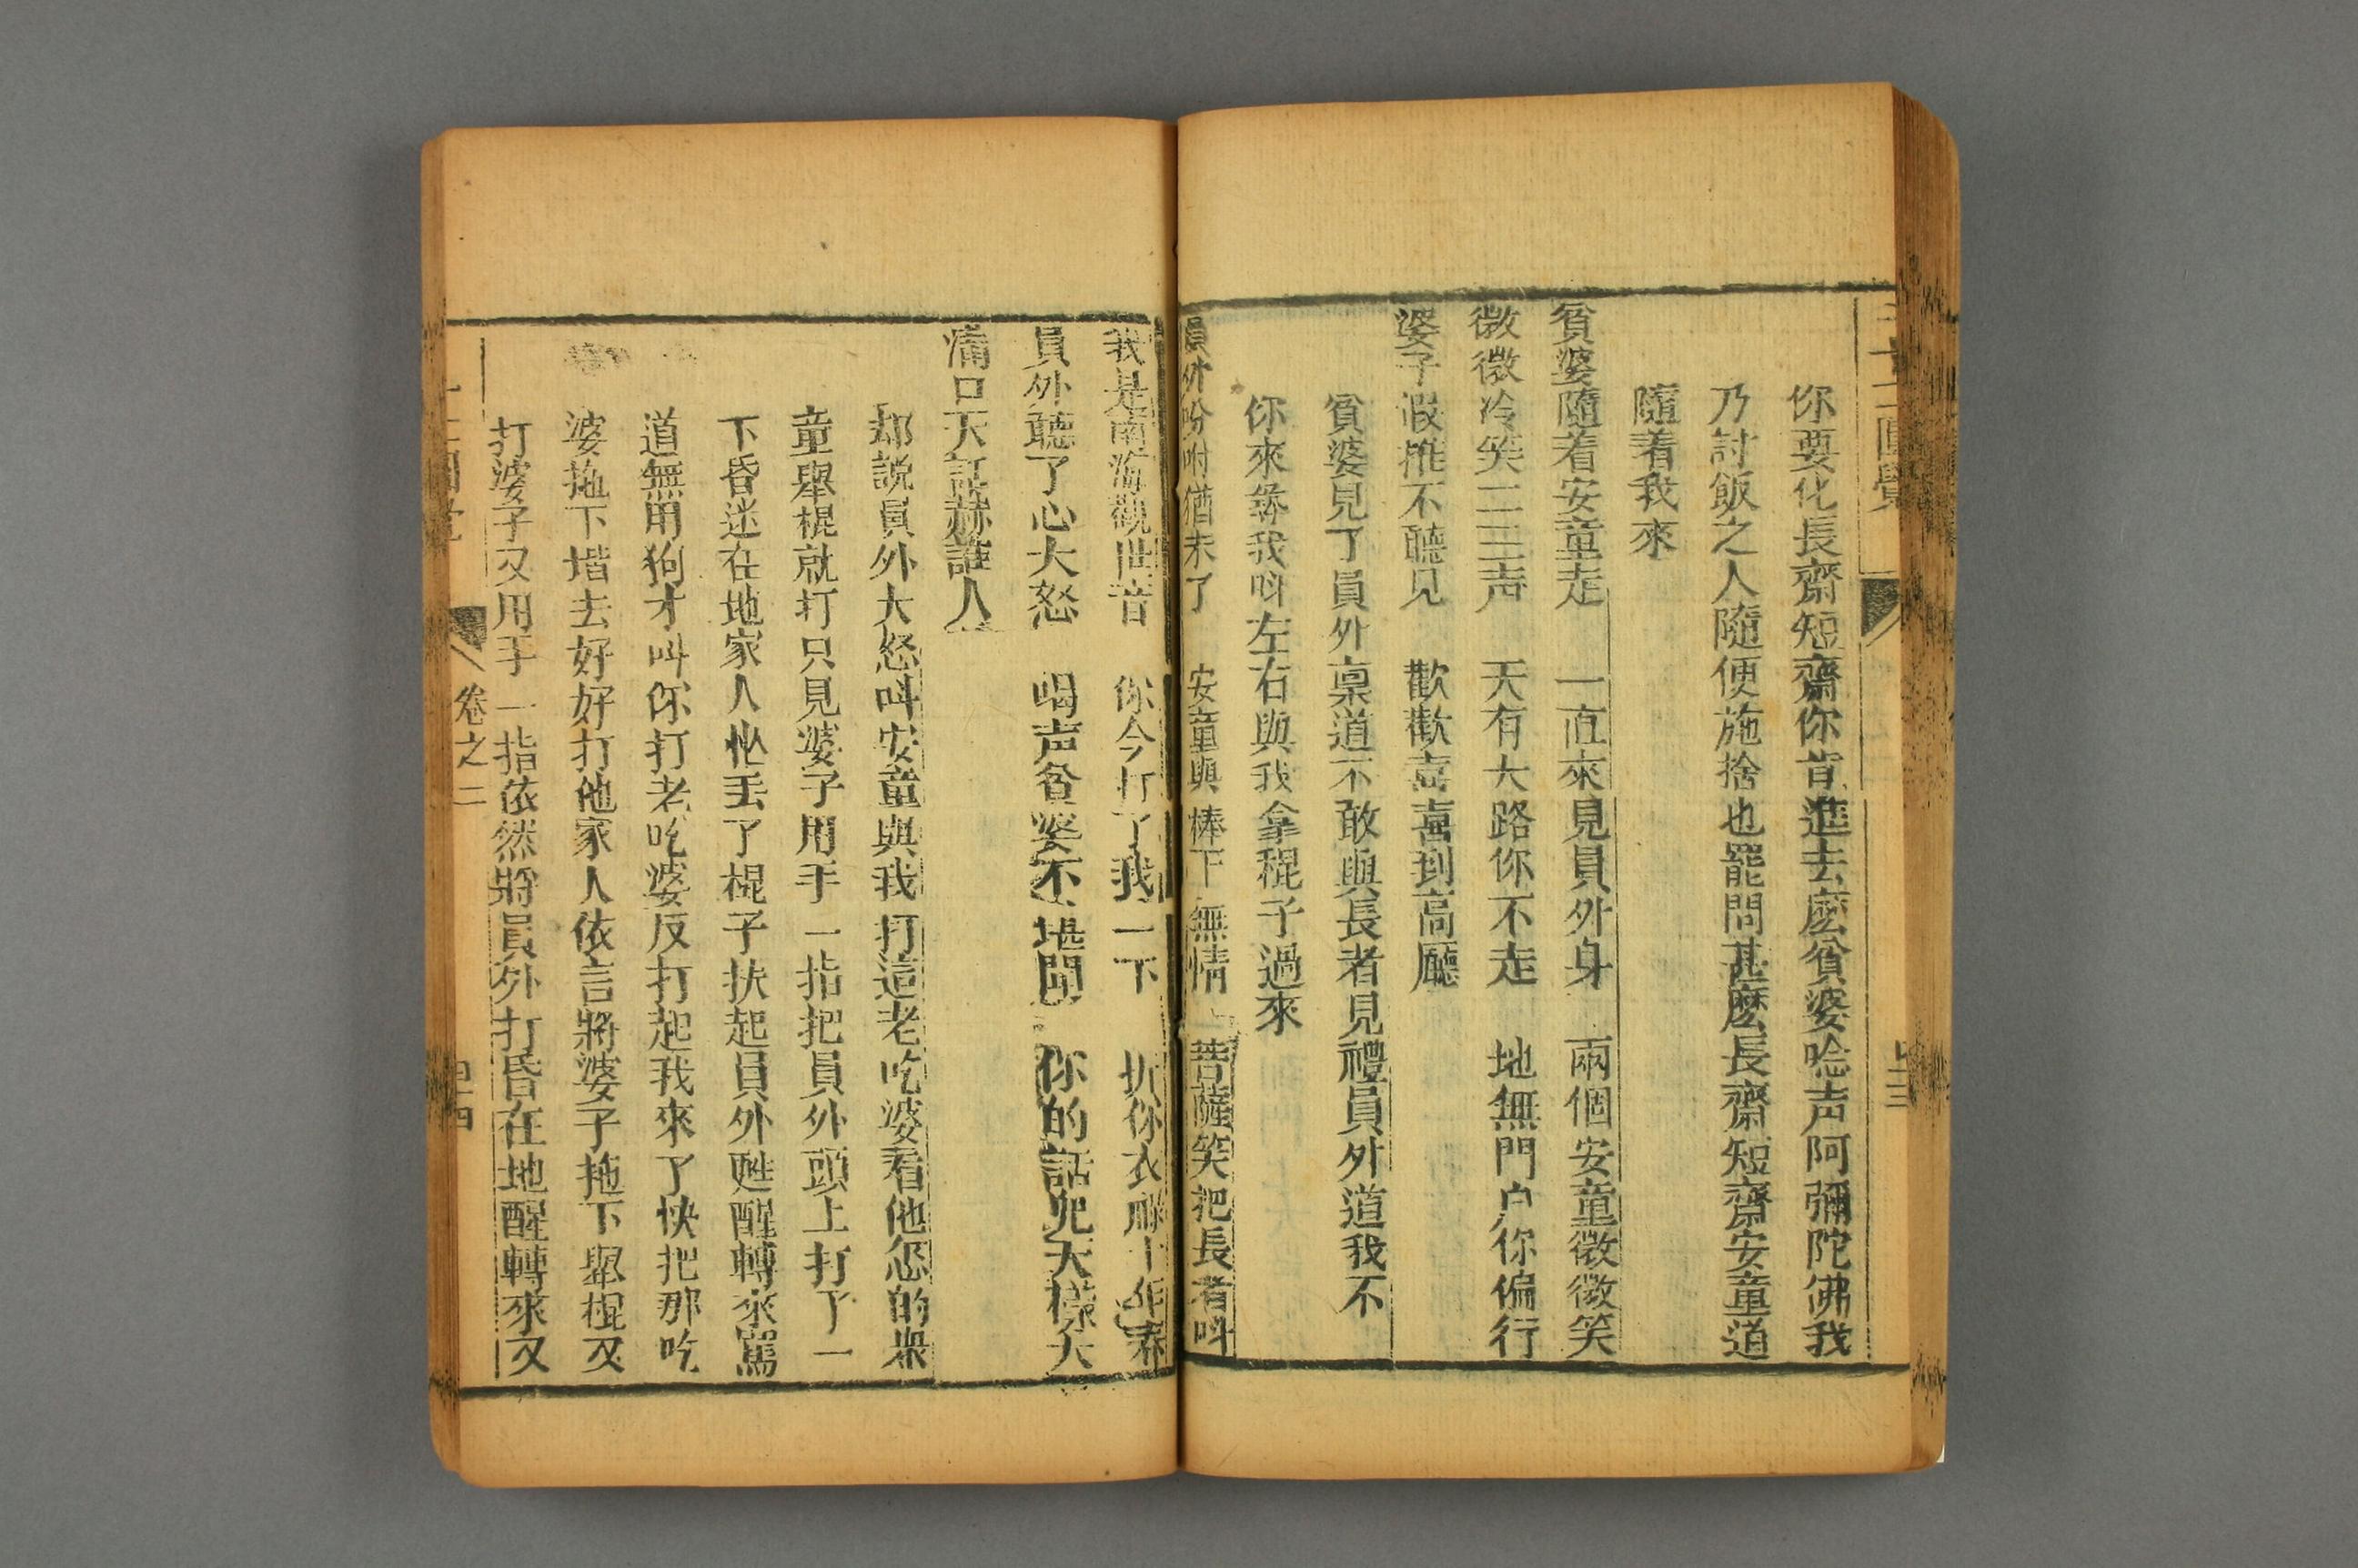 二圓覺
你要化長齋短齋你肯進去麽貧婆唸声阿彌陀佛我
乃討飯之人隨便施捨也罷問甚麽長齋短齋安童道
隨着我來
貧婆隨着安童走　一直來見員外身　兩個安童微微笑
微微冷笑二三声　天有大路你不走　地無門户你偏行
婆子假推不聽見　歡歡喜喜到高廳
貧婆見了員外稟道不敢與長者見禮員外道我不
你來我呌左右與我拿棍子過來
員外吩咐猶未了　安童與棒下無情　菩薩笑把長者呌
我是南海觀世音　你今打了我一下　折你衣祿十年春
員外聽了心大怒　喝声貧婆不堪聞　你的話兒天樣大
滿口天話赫誰人
却説員外大怒呌安童與我打這老吃婆看他怎的衆
童舉棍就打只見婆子用手一指把員外頭上打了一
下昏迷在地家人忙丢了棍子扶起員外甦醒轉來駡
道無用狗才呌你打老吃婆反打起我來了快把那吃
婆拖下堦去好好打他家人依言將婆子拖下舉棍又
打婆子又用手一指依然將員外打昏在地醒轉來又
卷之二